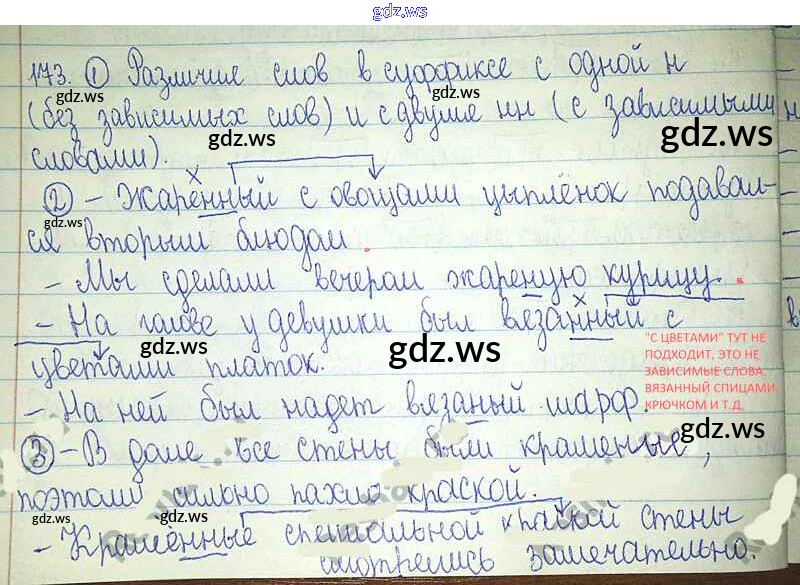 gdz.ws
173. ① Различие слов в суффиксе с одной н
(без зависимых слов) и с двумя нн (с зависимыми
словами).
② - Жаренный с овощами цыплёнок подавал-
ся вторым блюдом.
- Мы сделали вечером жареную курицу.
- На голове у девушки был вязанный с
цветами платок.
"С ЦВЕТАМИ" ТУТ НЕ
ПОДХОДИТ, ЭТО НЕ
ЗАВИСИМЫЕ СЛОВА.
ВЯЗАННЫЙ СПИЦАМИ,
КРЮЧКОМ И Т.Д.
- На ней был надет вязаный шарф.
③ - В доме все стены были крашеные,
поэтому сильно пахло краской.
- Крашенные специальной краской стены
смотрелись замечательно.
gdz.ws
gdz.ws
gdz.ws
gdz.ws
gdz.ws
gdz.ws
gdz.ws
gdz.ws
gdz.ws
gdz.ws
gdz.ws
gdz.ws